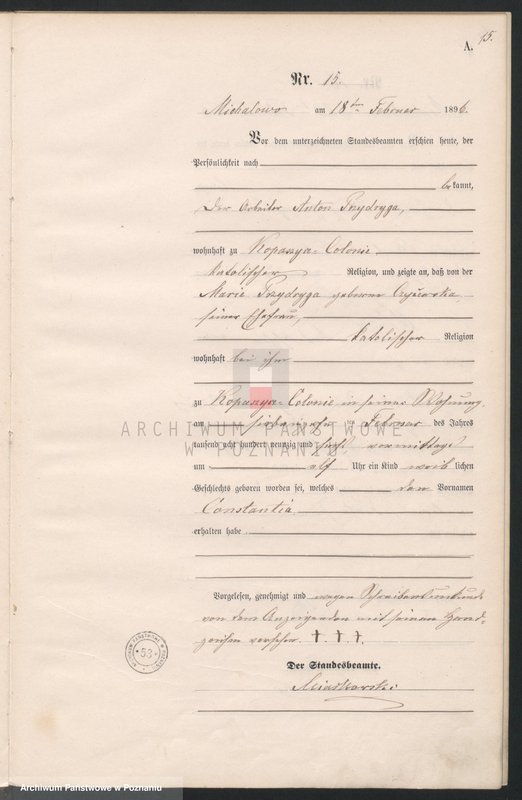 A. 15.
Nr. 15.
Michalowo am 18ten Februar 1896.
Vor dem unterzeichneten Standesbeamten erschien heute, der
Persönlichkeit nach
bekannt,
der Arbeiter Anton
wohnhaft zu Kopaszyce-Colonie
katholischer Religion, und zeigte an, daß von der
Marie geborene
seiner Ehefrau,
katholischer Religion
wohnhaft bei ihm
zu Colonie in seiner Wohnung
am siebenten Februar des Jahres
tausend acht hundert neunzig und sechs, vormittags
um elf Uhr ein Kind weiblichen
Geschlechts geboren worden sei, welches den Vornamen
Constantia
erhalten habe
Vorgelesen, genehmigt und wegen Schreibensunkunde
von dem Anzeigenden mit seinem Hand-
zeichen versehen. † † †.
Der Standesbeamte.
ARCHIWUM PAŃSTWOWE
W POZNANIU
53
Archiwum Panstwowe w Poznaniu